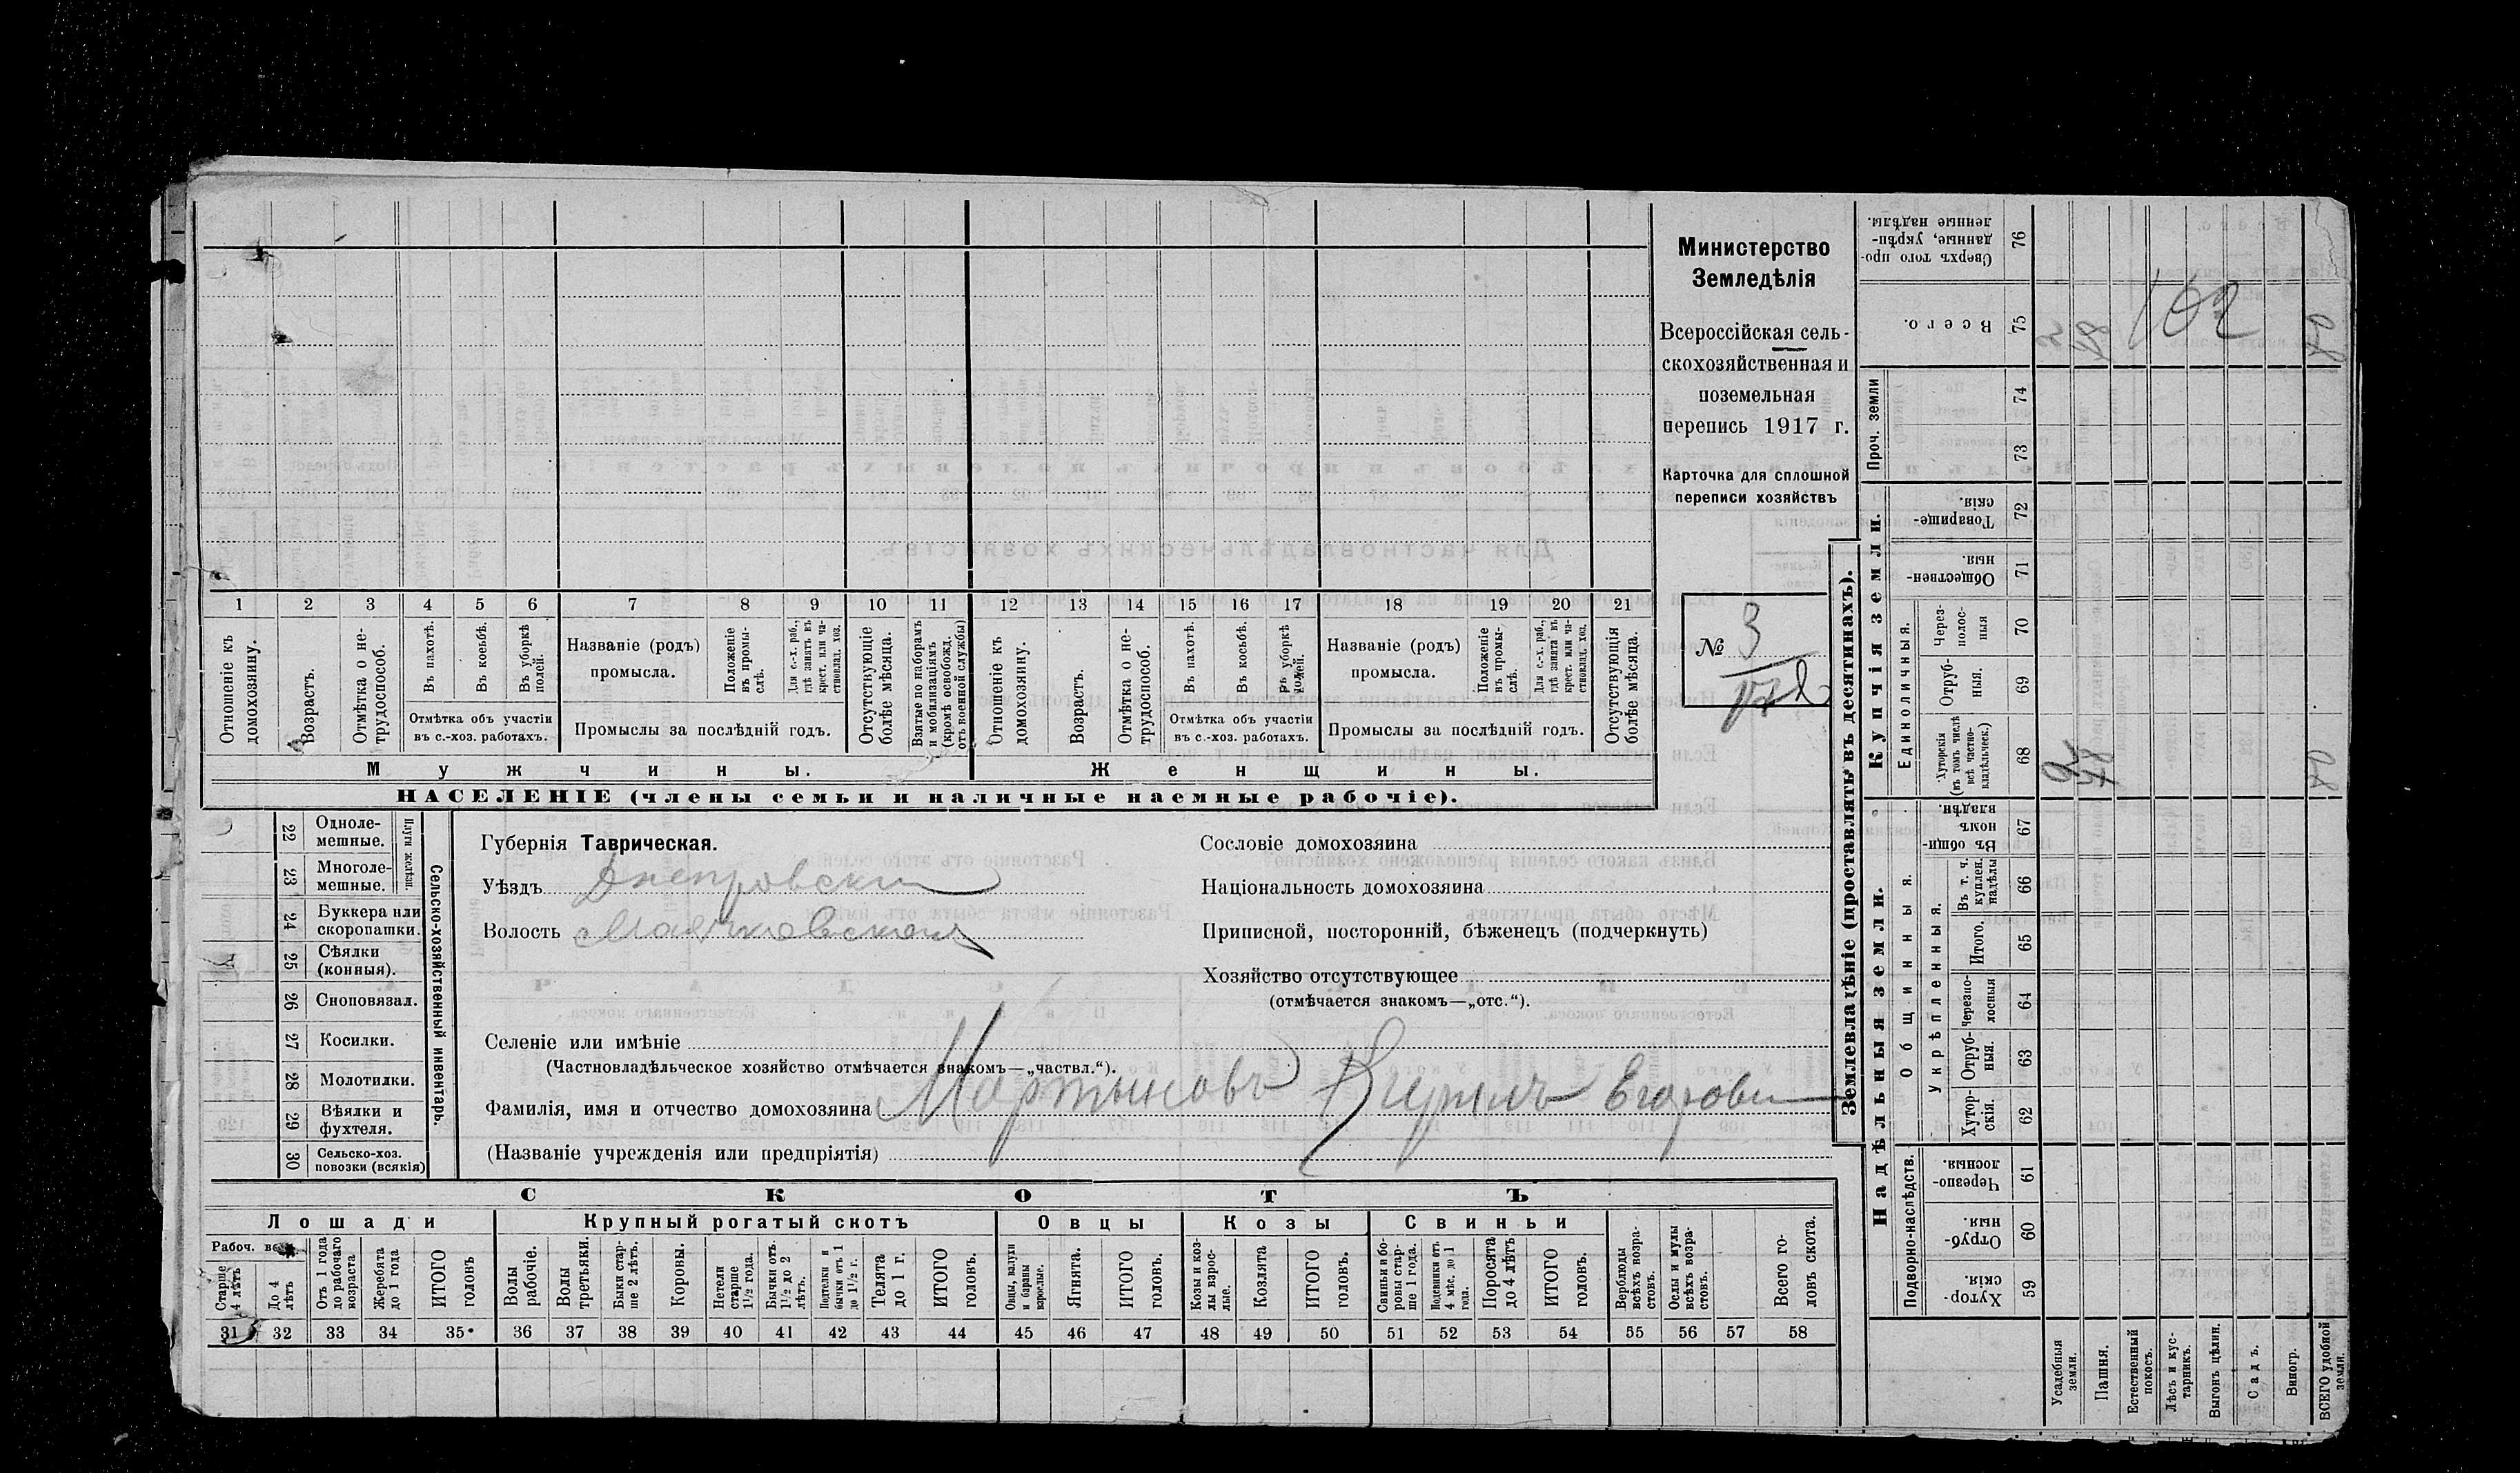 1 2 3 4 5 6 7 8 9 10 11 12 13 14 15 16 17 18 19 20 21
Отношеніе къ домохозяину.
Возрастъ.
Отмѣтка о нетрудоспособ.
Въ пахотѣ.
Въ косьбѣ.
Въ уборкѣ полей.
Отмѣтка объ участіи
въ с.-хоз. работахъ.
Названіе (родъ)
промысла.
Положеніе въ промыслѣ.
Для с.-х. раб., гдѣ занятъ въ крест. или частновлад. хоз.
Промыслы за послѣдній годъ.
Отсутствующіе болѣе мѣсяца.
Взятые по наборамъ и мобилизаціямъ (кромѣ освобожд. отъ военной службы)
Отношеніе къ домохозяину.
Возрастъ.
Отмѣтка о нетрудоспособ.
Въ пахотѣ.
Въ косьбѣ.
Въ уборкѣ полей.
Отмѣтка объ участіи
въ с.-хоз. работахъ.
Названіе (родъ)
промысла.
Положеніе въ промыслѣ.
Для с.-х. раб., гдѣ занята въ крест. или частновлад. хоз.
Промыслы за послѣдній годъ.
Отсутствующія болѣе мѣсяца.
Мужчины.
Женщины.
НАСЕЛЕНІЕ (члены семьи и наличные наемные рабочіе).
Министерство
Земледѣлія
Всероссійская сель-
скохозяйственная и
поземельная
перепись 1917 г.
Карточка для сплошной
переписи хозяйствъ
№ 3
Сельско-хозяйственный инвентарь.
Плуги желѣзн.
22 Одноле-
мешные.
23 Многоле-
мешные.
24 Буккера или
скоропашки.
25 Сѣялки
(конныя).
26 Сноповязал.
27 Косилки.
28 Молотилки.
29 Вѣялки и
фухтеля.
30 Сельско-хоз.
повозки (всякія)
Губернія Таврическая.
Уѣздъ Днепровски
Волость Маячковская
Селеніе или имѣніе
(Частновладѣльческое хозяйство отмѣчается знакомъ—„частвл.“).
Фамилія, имя и отчество домохозяина Мартыновъ Кирилъ Егорови
(Названіе учрежденія или предпріятія)
Сословіе домохозяина
Національность домохозяина
Приписной, посторонній, бѣженецъ (подчеркнуть)
Хозяйство отсутствующее
(отмѣчается знакомъ—„отс.“).
СКОТЪ
Лошади
Рабоч. воз.
Старше 4 лѣтъ
До 4 лѣтъ
Отъ 1 года до рабочаго возраста
Жеребята до 1 года
ИТОГО головъ
Крупный рогатый скотъ
Волы рабочіе.
Волы третьяки.
Быки старше 2 лѣтъ.
Коровы.
Нетели старше 1½ года.
Бычки отъ 1½ до 2 лѣтъ.
Подтелки и бычки отъ 1 до 1½ г.
Телята до 1 г.
ИТОГО головъ.
Овцы
Овцы, валухи и бараны взрослые.
Ягнята.
ИТОГО головъ.
Козы
Козы и козлы взрослые.
Козлята
ИТОГО головъ.
Свиньи
Свиньи и боровы старше 1 года.
Подсвинки отъ 4 мѣс. до 1 года.
Поросята до 4 лѣтъ
ИТОГО головъ.
Верблюды всѣхъ возрастовъ.
Ослы и мулы всѣхъ возрастовъ.
Всего головъ скота.
31 32 33 34 35 36 37 38 39 40 41 42 43 44 45 46 47 48 49 50 51 52 53 54 55 56 57 58
Землевладѣніе (проставлять въ десятинахъ).
Надѣльныя земли.
Купчія земли.
Проч. земли
Подворно-наслѣдств.
Хуторскія. 59
Отрубныя. 60
Черезполосныя. 61
Общинныя.
Укрѣпленныя.
Хуторскія. 62
Отрубныя. 63
Черезполосныя 64
Итого. 65
Въ т. ч. куплен. надѣлы 66
Въ общинномъ владѣн. 67
Единоличныя.
Хуторскія (въ томъ числѣ всѣ частновладѣльческ.) 68
Отрубныя. 69
Черезполосныя 70
Общественныя. 71
Товарищескія. 72
73
74
Всего. 75
Сверхъ того проданные, укрѣпленные надѣлы. 76
102
Усадебныя земли.
Пашня.
Естественный покосъ.
Лѣсъ и кустарникъ.
Выгонъ цѣлин.
Садъ.
Виногр.
ВСЕГО удобной земли.